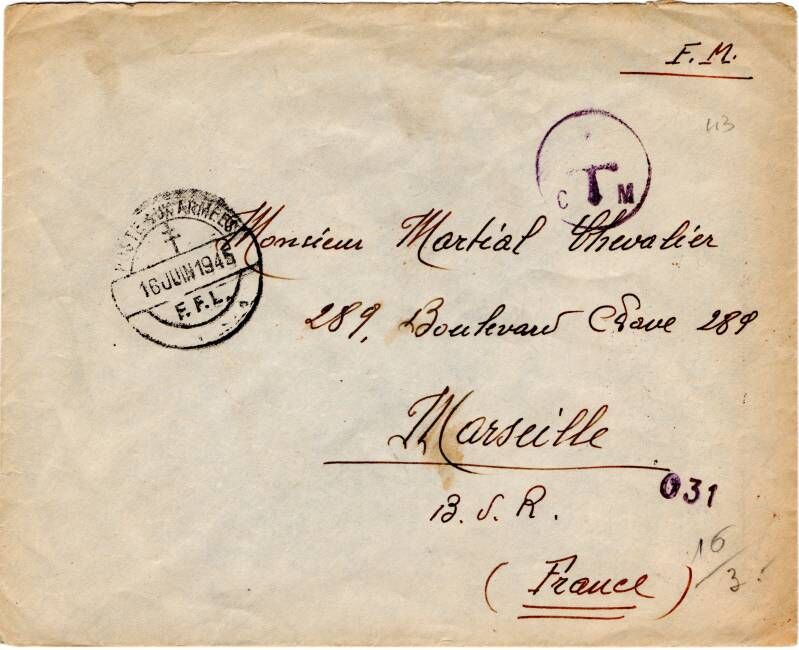 F. M.
113
C T M
POSTE AUX ARMEES
16 JUIN 1945
F. F. L.
Monsieur Martial Chevalier
289, Boulevard Chave 289
Marseille
031
B. d. R.
16/3
(France)